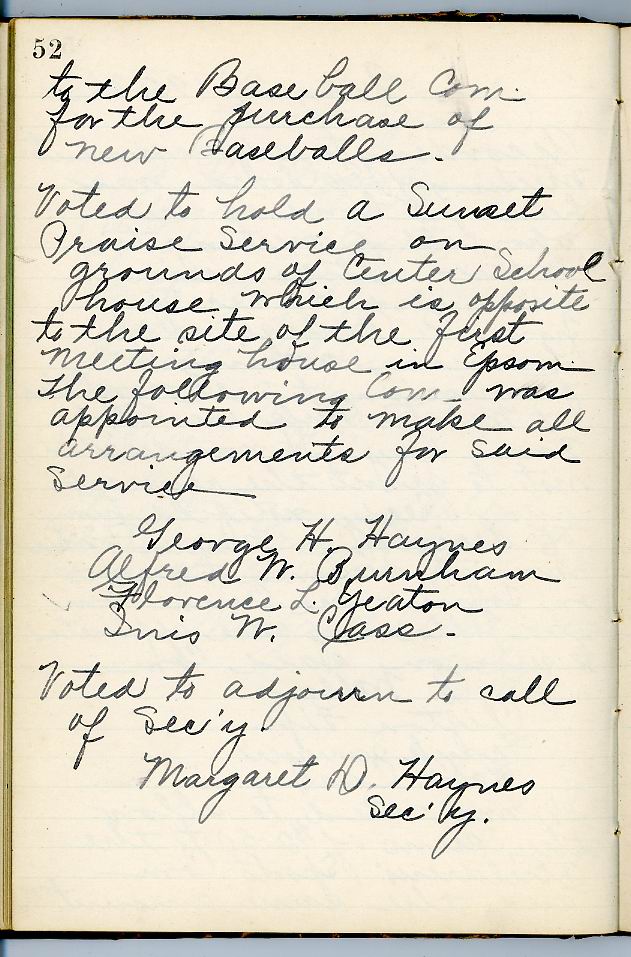 52
to the Base ball Com.
for the purchase of
new Baseballs.
Voted to hold a Sunset
Praise Service on
grounds of Center School
house which is opposite
to the site of the first
meeting house in Epsom.
The following Com. was
appointed to make all
arrangements for said
service
George H. Haynes
Alfred W. Burnham
Florence L. Yeaton
Inis W. Cass.
Voted to adjourn to call
of Sec'y.
Margaret D. Haynes
Sec'y.